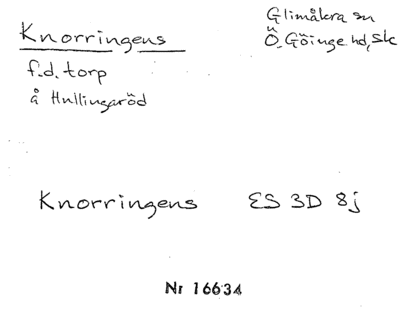 Knorringens
Glimåkra sn
Ö. Göinge hd, Sk
f.d. torp
å Hullingaröd
Knorringens ES 3D 8j
Nr 16634